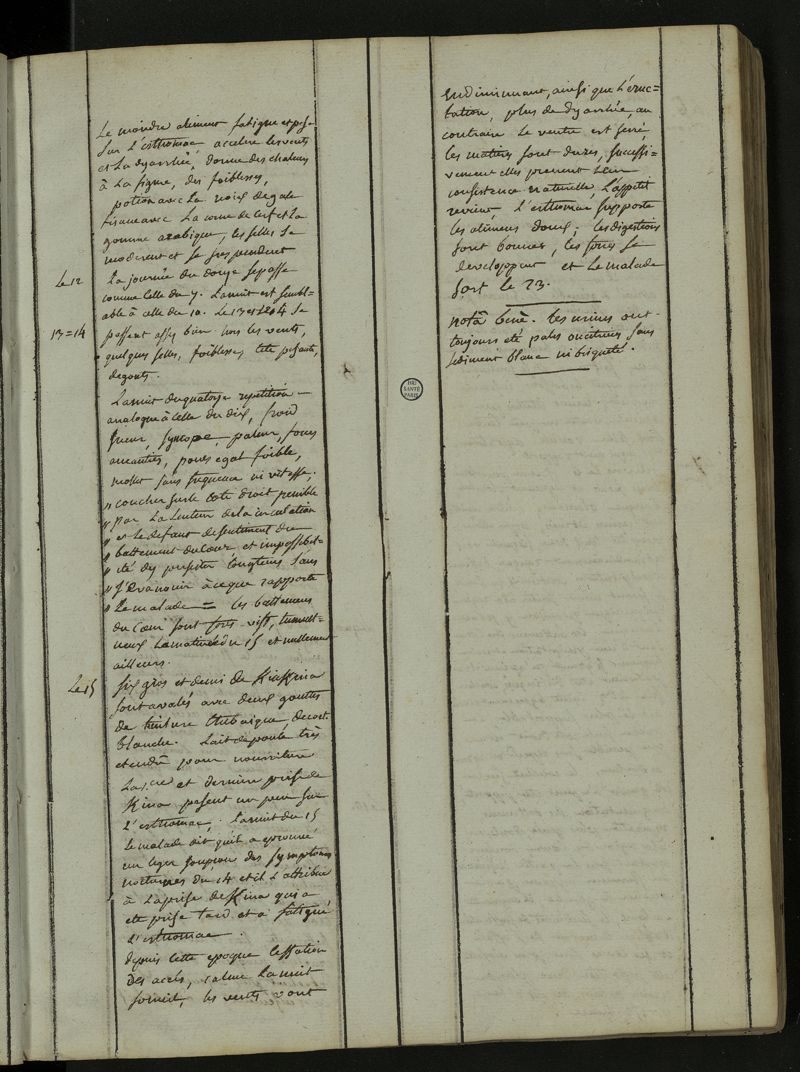 Le moindre aliment fatigue et pese
sur l'esthomac accelere les vents
et la dyarrhée, donne des chaleurs
à la figure, des foiblesses,
potion avec la noix de gale
tisane avec la corne de cerf et la
gomme arabique, les selles se
moderent et se suspendent
Le 12
La journée du douze se passe
comme celle du 7. La nuit est sembl-
able à celle du 10. Le 13 et le 14 se
13=14
passent assez bien hors les vents,
quelques selles, foiblesses tete pesante,
degouts.
La nuit du quatorze repetition
analogue à celle du dix, froid
sueur, syncope, paleur, forces
aneanties, pouls egal foible,
mollet sans frequence ni vitesse;
" coucher sur le coté droit penible
" par la lenteur de la circulation
" et le defaut de sentiment du
" battement du coeur, et impossibil-
" ité d'y persister longtems sans
" s'evanouir à ce que rapporte
" le malade = les battemens
du coeur sont forts vifs, tumult-
ueux la matinée du 15 et nullement
ailleurs.
Le 15
Six gros et demi de Kinkina
sont avalés avec deux gouttes
de teinture thebaique, decoct.
blanche. Lait de poule très
etendu pour nourriture
La 1.ere et derniere prise de
Kina pesent un peu sur
l'esthomac; la nuit du 15
le malade dit qu'il a eprouvé
un leger soupçon des symptomes
nocturnes du 14 et il l'attribue
à la prise de Kina qui a
eté prise tard et a fatigué
l'esthomac.
depuis cette epoque cessation
des accès, calme la nuit
someil, les vents vont
en diminuant, ainsi que l'éruc=
tation, plus de dyarrhée, au
contraire le ventre est serré,
les matieres sont dures, successi-
vement elles prennent leur
consistence naturelle, l'appetit
revient, l'esthomac supporte
les alimens doux; les digestions
sont bonnes, les forces se
developpent et le malade
sort le 23.
notà benè. les urines ont
toujours eté pales citrines sans
sediment blanc ni briqueté.
BIU
SANTÉ
PARIS